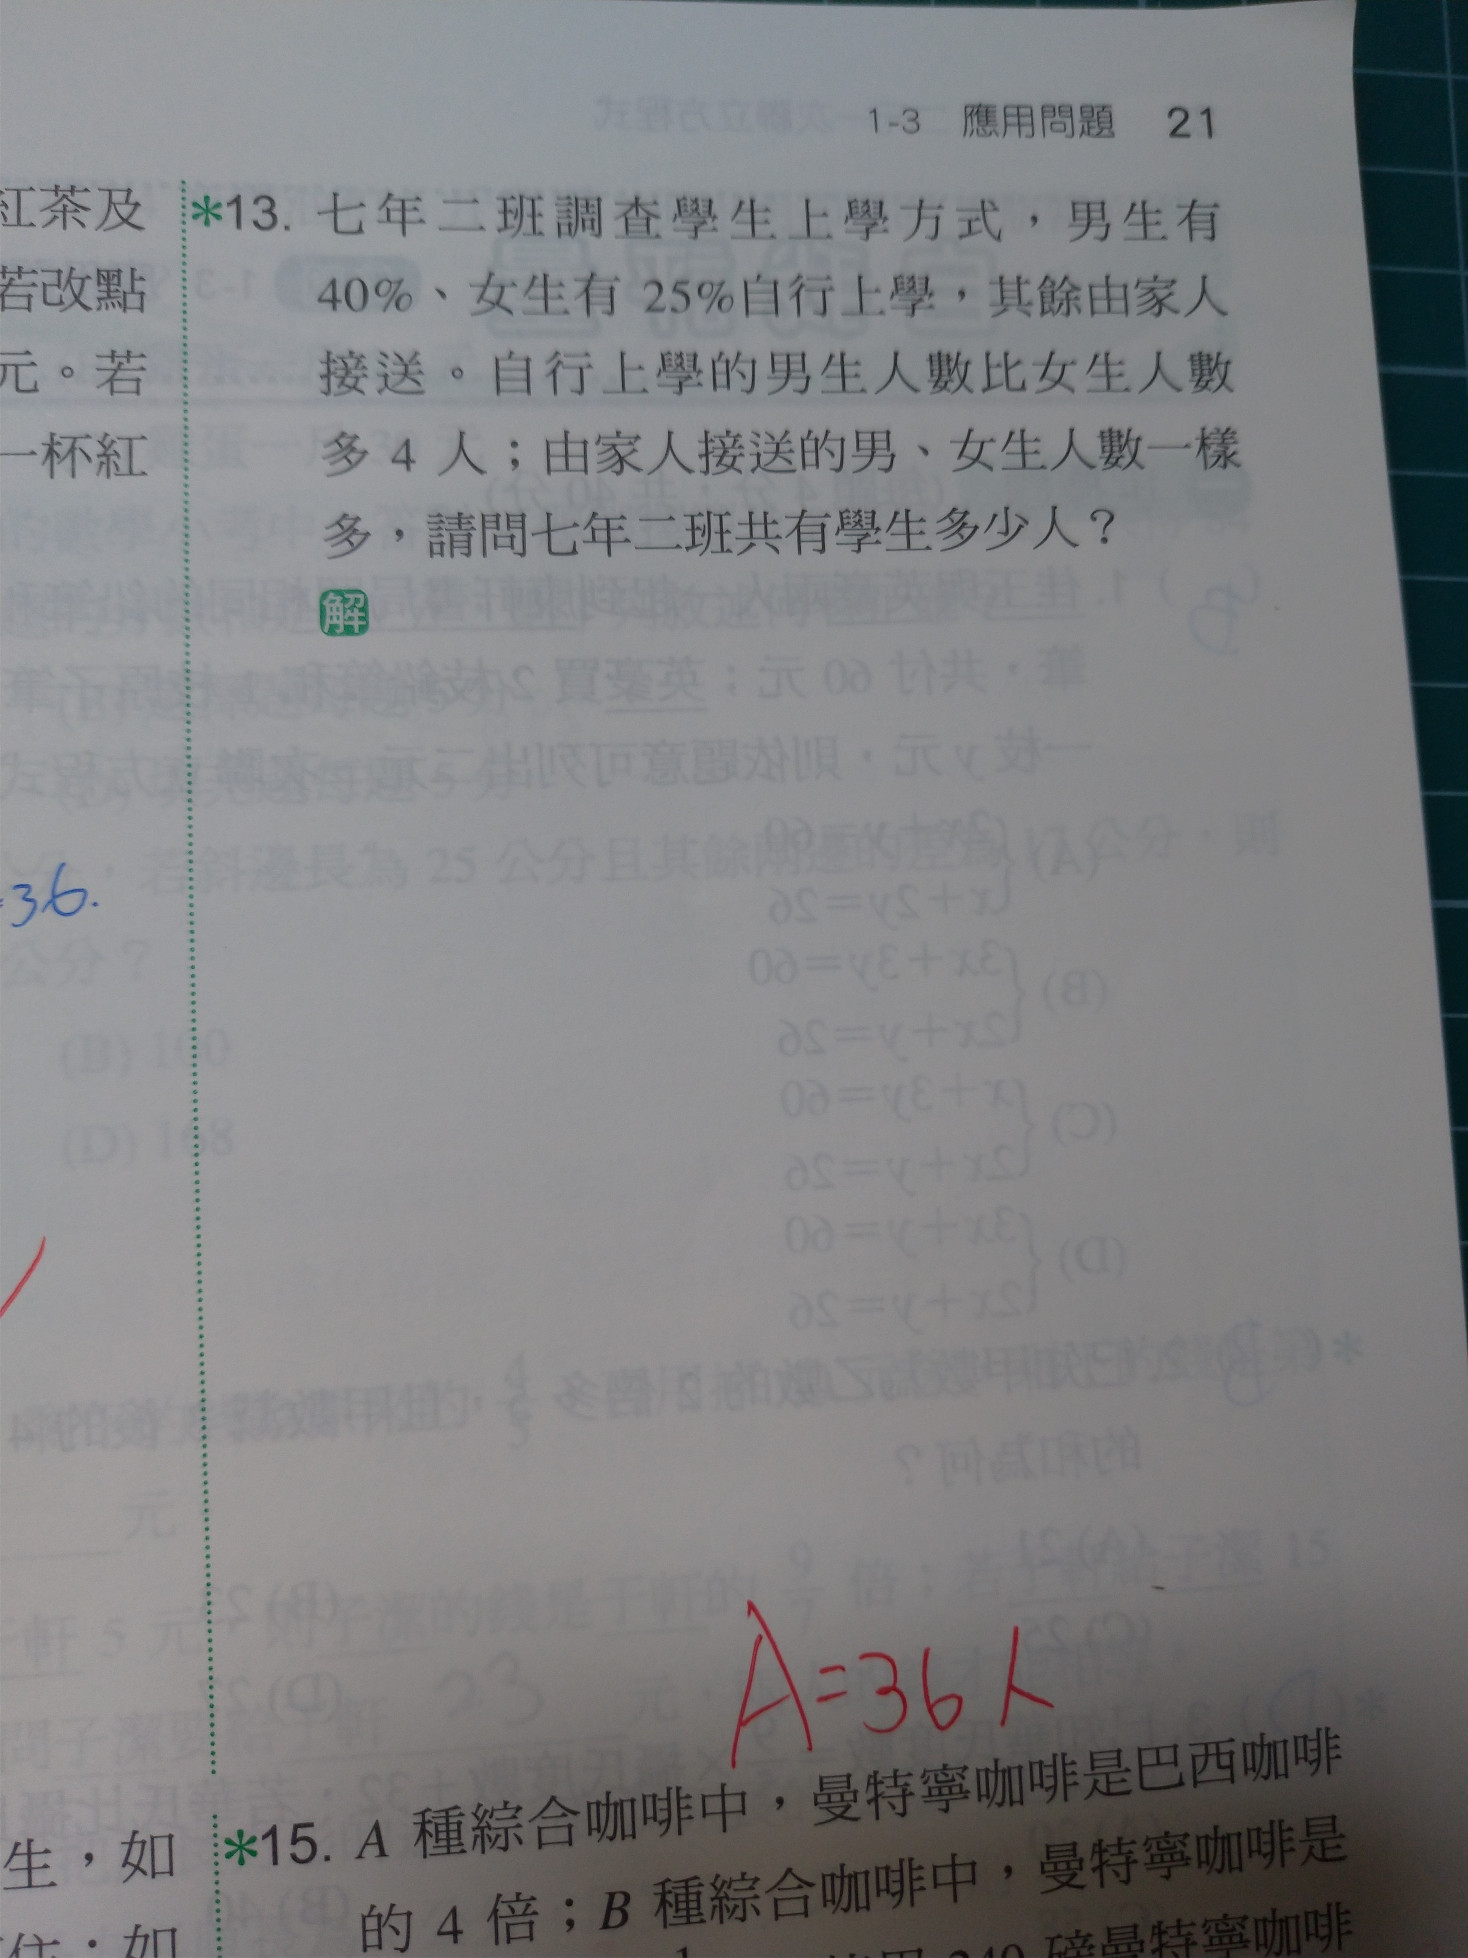 1-3 應用問題 21
紅茶及
若改點
元。若
一杯紅
=36.
*13. 七年二班調查學生上學方式，男生有
40%、女生有 25%自行上學，其餘由家人
接送。自行上學的男生人數比女生人數
多 4 人；由家人接送的男、女生人數一樣
多，請問七年二班共有學生多少人？
解
A=36人
生，如
住；如
*15. A 種綜合咖啡中，曼特寧咖啡是巴西咖啡
的 4 倍；B 種綜合咖啡中，曼特寧咖啡是
240 磅曼特寧咖啡